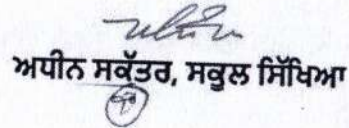 ਅਧੀਨ ਸਕੱਤਰ, ਸਕੂਲ ਸਿੱਖਿਆ